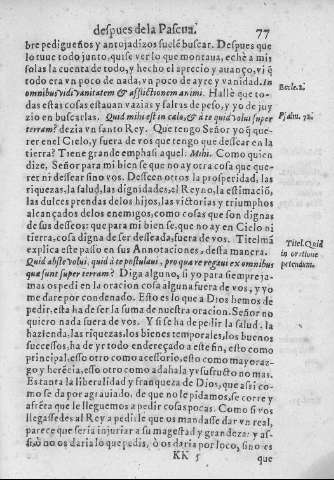 despues de la Pascua. 77
bre pedigueños y antojadizos suelẽ buscar. Despues que
lo tuue todo junto, quise ver lo que montaua, echè a mis
solas la cuenta de todo, y hecho el aprecio y auanço, vi q̃
todo era vn poco de nada, vn poco de ayre y vanidad. In
omnibus vidi vanitatem & afflictionem animi. Hallè que to-
das estas cosas estauan vazias y faltas de peso, y yo de juy
zio en buscarlas. Quid mihi est in cælo, & à te quid volui super
terram? dezia vn santo Rey. Que tengo Señor yo q̃ que-
rer en el Cielo, y fuera de vos que tengo que dessear en la
tierra? Tiene grande emphasi aquel. Mihi. Como quien
dize, Señor para mi bien se que no ay otra cosa que que-
rer ni dessear sino vos. Desseen otros la prosperidad, las
riquezas, la salud, las dignidades, el Reyno, la estimaciõ,
las dulces prendas delos hijos, las victorias y triumphos
alcançados delos enemigos, como cosas que son dignas
de sus desseos: que para mi bien se, que no ay en Cielo ni
tierra, cosa digna de ser desseada, fuera de vos. Titelmã
explica este passo en sus Annotaciones, desta manera.
Quid abs te volui, quid à te postulaui, pro qua re rogaui ex omnibus
quæ sunt super terram? Diga alguno, si yo para siempre ja-
mas os pedi en la oracion cosa alguna fuera de vos, y yo
me dare por condenado. Esto es lo que a Dios hemos de
pedir, esta ha de ser la suma de nuestra oracion. Señor no
quiero nada fuera de vos. Y si se ha de pedir la salud, la
hazienda, las riquezas, los bienes temporales, los buenos
successos, ha de yr todo endereçado a este fin, esto como
principal, esso otro como acessorio, esto como mayoraz-
go y herẽcia, esso otro como adahala y vsufructo no mas.
Es tanta la liberalidad y franqueza de Dios, que assi co-
mo se da por agrauiado, de que no le pidamos, se corre y
afrẽta que le lleguemos a pedir cosas pocas. Como si vos
llegassedes al Rey a pedirle que os mandasse dar vn real,
parece que seria injuriar a su magestad y grandeza: y as-
si, ò no os daria lo que pedis, ò os daria por loco, sino es
KK 5 que
Eccle. 2.
Psalm. 72.
Titel. Quid
in oratione
petendum.